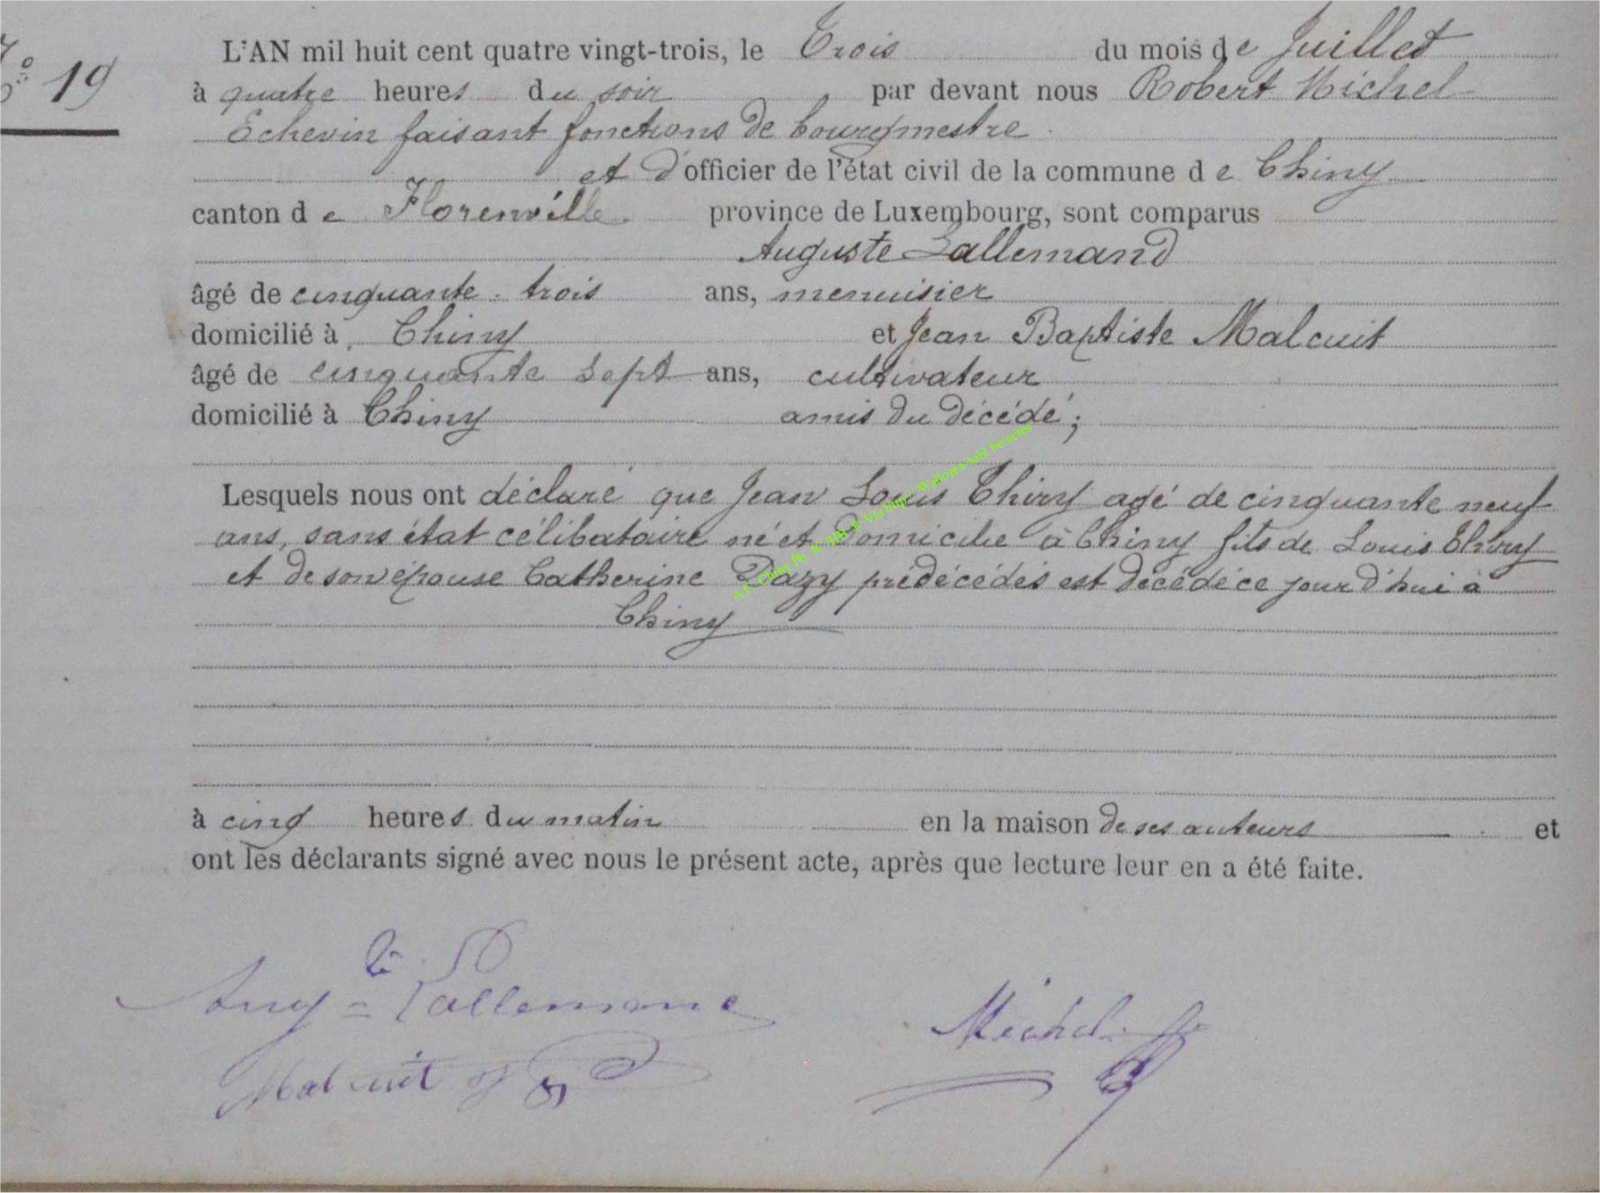 N° 19
L'AN mil huit cent quatre vingt-trois, le Trois du mois de Juillet
à quatre heures du soir par devant nous Robert Michel
Echevin faisant fonctions de bourgmestre
et d'officier de l'état civil de la commune de Chiny
canton de Florenville province de Luxembourg, sont comparus
Auguste Lallemand
âgé de cinquante-trois ans, menuisier
domicilié à Chiny et Jean Baptiste Malcuit
âgé de cinquante sept ans, cultivateur
domicilié à Chiny amis du décédé;
Lesquels nous ont déclaré que Jean Louis Thiry agé de cinquante neuf
ans, sans état célibataire né et domicilie à Chiny fils de Louis Thiry
et de son épouse Catherine Dazy prédécédés est decédé ce jour d'hui à
Chiny
à cinq heures du matin en la maison de ses auteurs et
ont les déclarants signé avec nous le présent acte, après que lecture leur en a été faite.
Aug = Lallemand
Michel
Malcuit